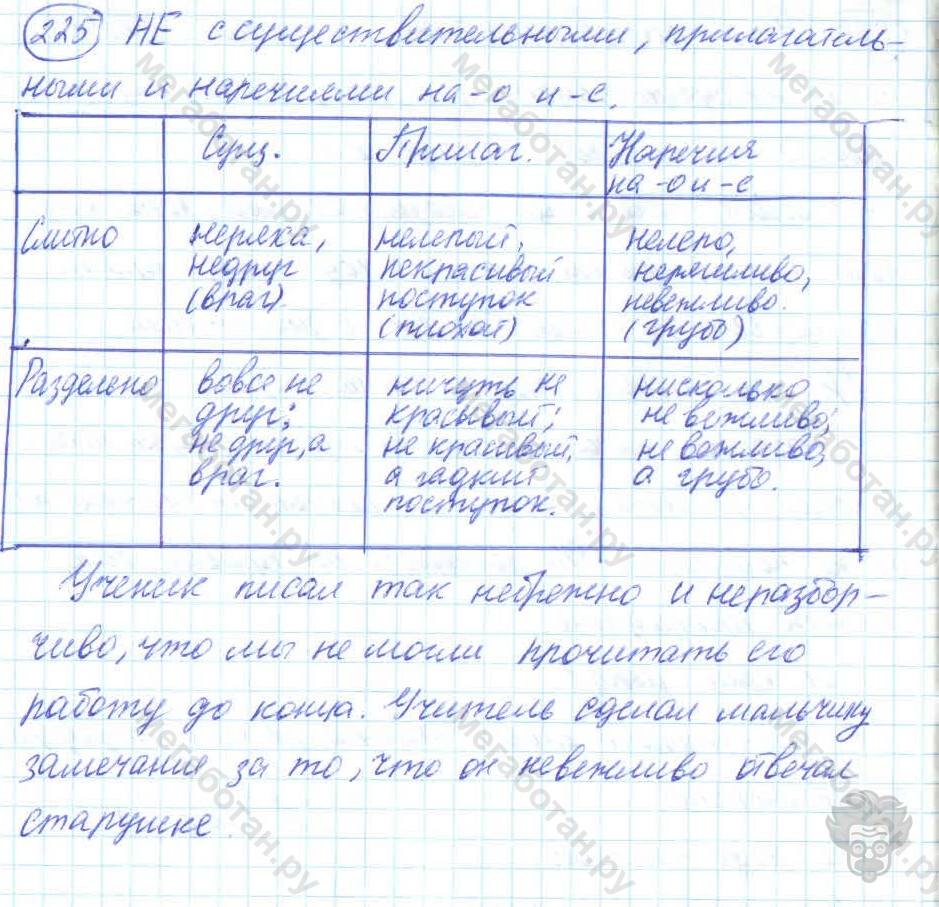 225 НЕ с существительными, прилагатель-
ными и наречиями на -о и -е.
Сущ. Прилаг. Наречия
на -о и -е
Слитно неряха, нелепый, нелепо,
недруг некрасивый неряшливо,
(враг) поступок невежливо.
(плохой) (грубо)
Раздельно вовсе не ничуть не нисколько
друг; красивый; не вежливо;
не друг, а не красивый, не вежливо,
враг. а гадкий а грубо.
поступок.
Ученик писал так небрежно и неразбор-
чиво, что мы не могли прочитать его
работу до конца. Учитель сделал мальчику
замечание за то, что он невежливо отвечал
старушке.
мегаботан.ру